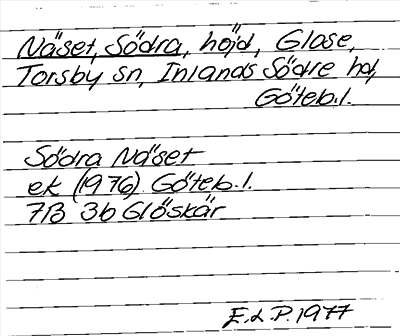 Näset, Södra, höjd, Glose,
Torsby sn, Inlands Södre hd,
Göteb.l.
Södra Näset
ek (1976) Göteb.l.
7B 3b Glöskär
E.d.P. 1977